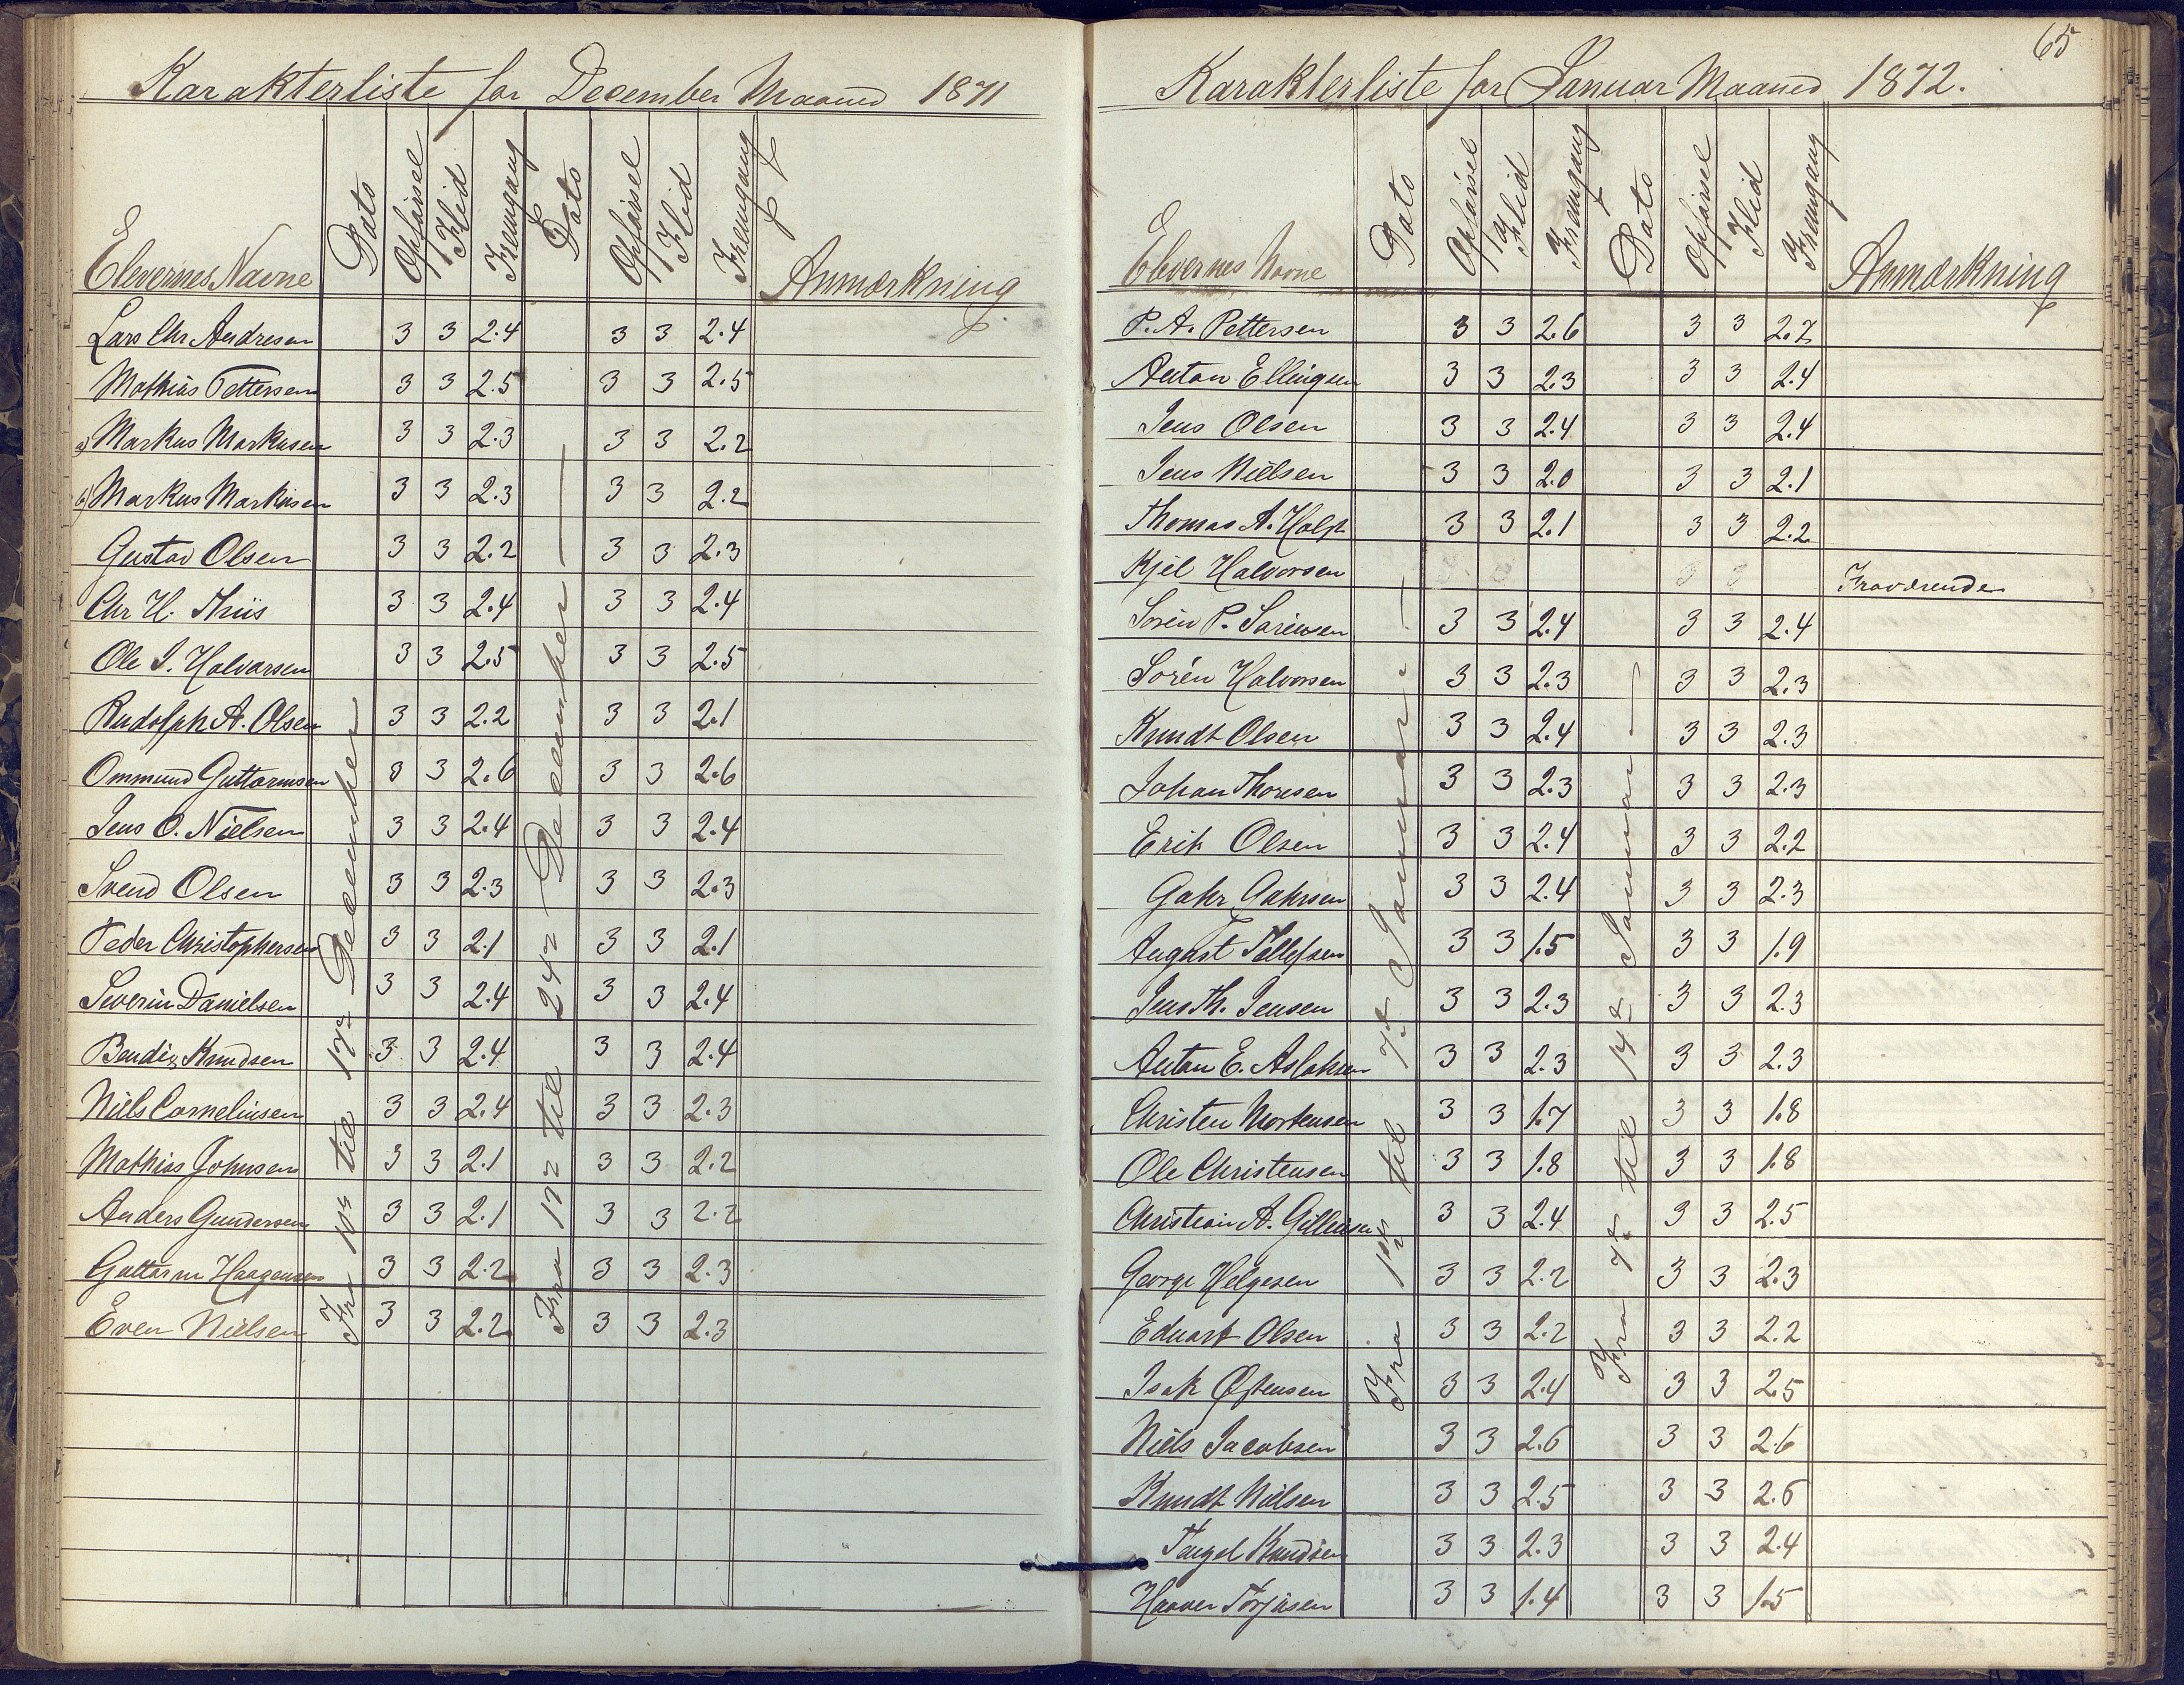 Karakterliste for December Maaned 1871
Elevernes Navne Dato Opførsel Flid Fremgang Dato Opførsel Flid Fremgang Anmærkning
Fra 10de til 17de December
Fra 17de til 24de December
Lars Chr Andresen 3 3 2.4 3 3 2.4
Mathias Pettersen 3 3 2.5 3 3 2.5
a) Markus Markusen 3 3 2.3 3 3 2.2
b) Markus Markusen 3 3 2.3 3 3 2.2
Gustav Olsen 3 3 2.2 3 3 2.3
Chr H. Thiis 3 3 2.4 3 3 2.4
Ole I. Halvorsen 3 3 2.5 3 3 2.5
Rudolph A. Olsen 3 3 2.2 3 3 2.1
Ommund Guttormsen 3 3 2.6 3 3 2.6
Jens O. Nielsen 3 3 2.4 3 3 2.4
Svend Olsen 3 3 2.3 3 3 2.3
Peder Christophersen 3 3 2.1 3 3 2.1
Severin Danielsen 3 3 2.4 3 3 2.4
Bendix Knudsen 3 3 2.4 3 3 2.4
Niels Corneliusen 3 3 2.4 3 3 2.3
Mathias Johnsen 3 3 2.1 3 3 2.2
Anders Gundersen 3 3 2.1 3 3 2.2
Guttorm Haagensen 3 3 2.2 3 3 2.3
Even Nielsen 3 3 2.2 3 3 2.3
65
Karakterliste for Januar Maaned 1872.
Elevernes Navne Dato Opførsel Flid Fremgang Dato Opførsel Flid Fremgang Anmærkning
Fra 1ste til 7de Januar
Fra 7de til 14de Januar
P. A. Pettersen 3 3 2.6 3 3 2.7
Anton Ellingsen 3 3 2.3 3 3 2.4
Jens Olsen 3 3 2.4 3 3 2.4
Jens Nielsen 3 3 2.0 3 3 2.1
Thomas A. Holst 3 3 2.1 3 3 2.2
Kjel Halvorsen Fraværende
Sören P. Sörensen 3 3 2.4 3 3 2.4
Sören Halvorsen 3 3 2.3 3 3 2.3
Knudt Olsen 3 3 2.4 3 3 2.3
Johan Thoresen 3 3 2.3 3 3 2.3
Erik Olsen 3 3 2.4 3 3 2.2
Gahr Gahrsen 3 3 2.4 3 3 2.3
August Tellefsen 3 3 1.5 3 3 1.9
Jens Th. Jensen 3 3 2.3 3 3 2.3
Anton E. Aslaksen 3 3 2.3 3 3 2.3
Christen Mortensen 3 3 1.7 3 3 1.8
Ole Christensen 3 3 1.8 3 3 1.8
Christian A. 3 3 2.4 3 3 2.5
George Helgesen 3 3 2.2 3 3 2.3
Eduart Olsen 3 3 2.2 3 3 2.2
Isak Østensen 3 3 2.4 3 3 2.5
Niels Jacobsen 3 3 2.6 3 3 2.6
Knudt Nielsen 3 3 2.5 3 3 2.6
Targel Knudsen 3 3 2.3 3 3 2.4
Haaver Torjusen 3 3 1.4 3 3 1.5